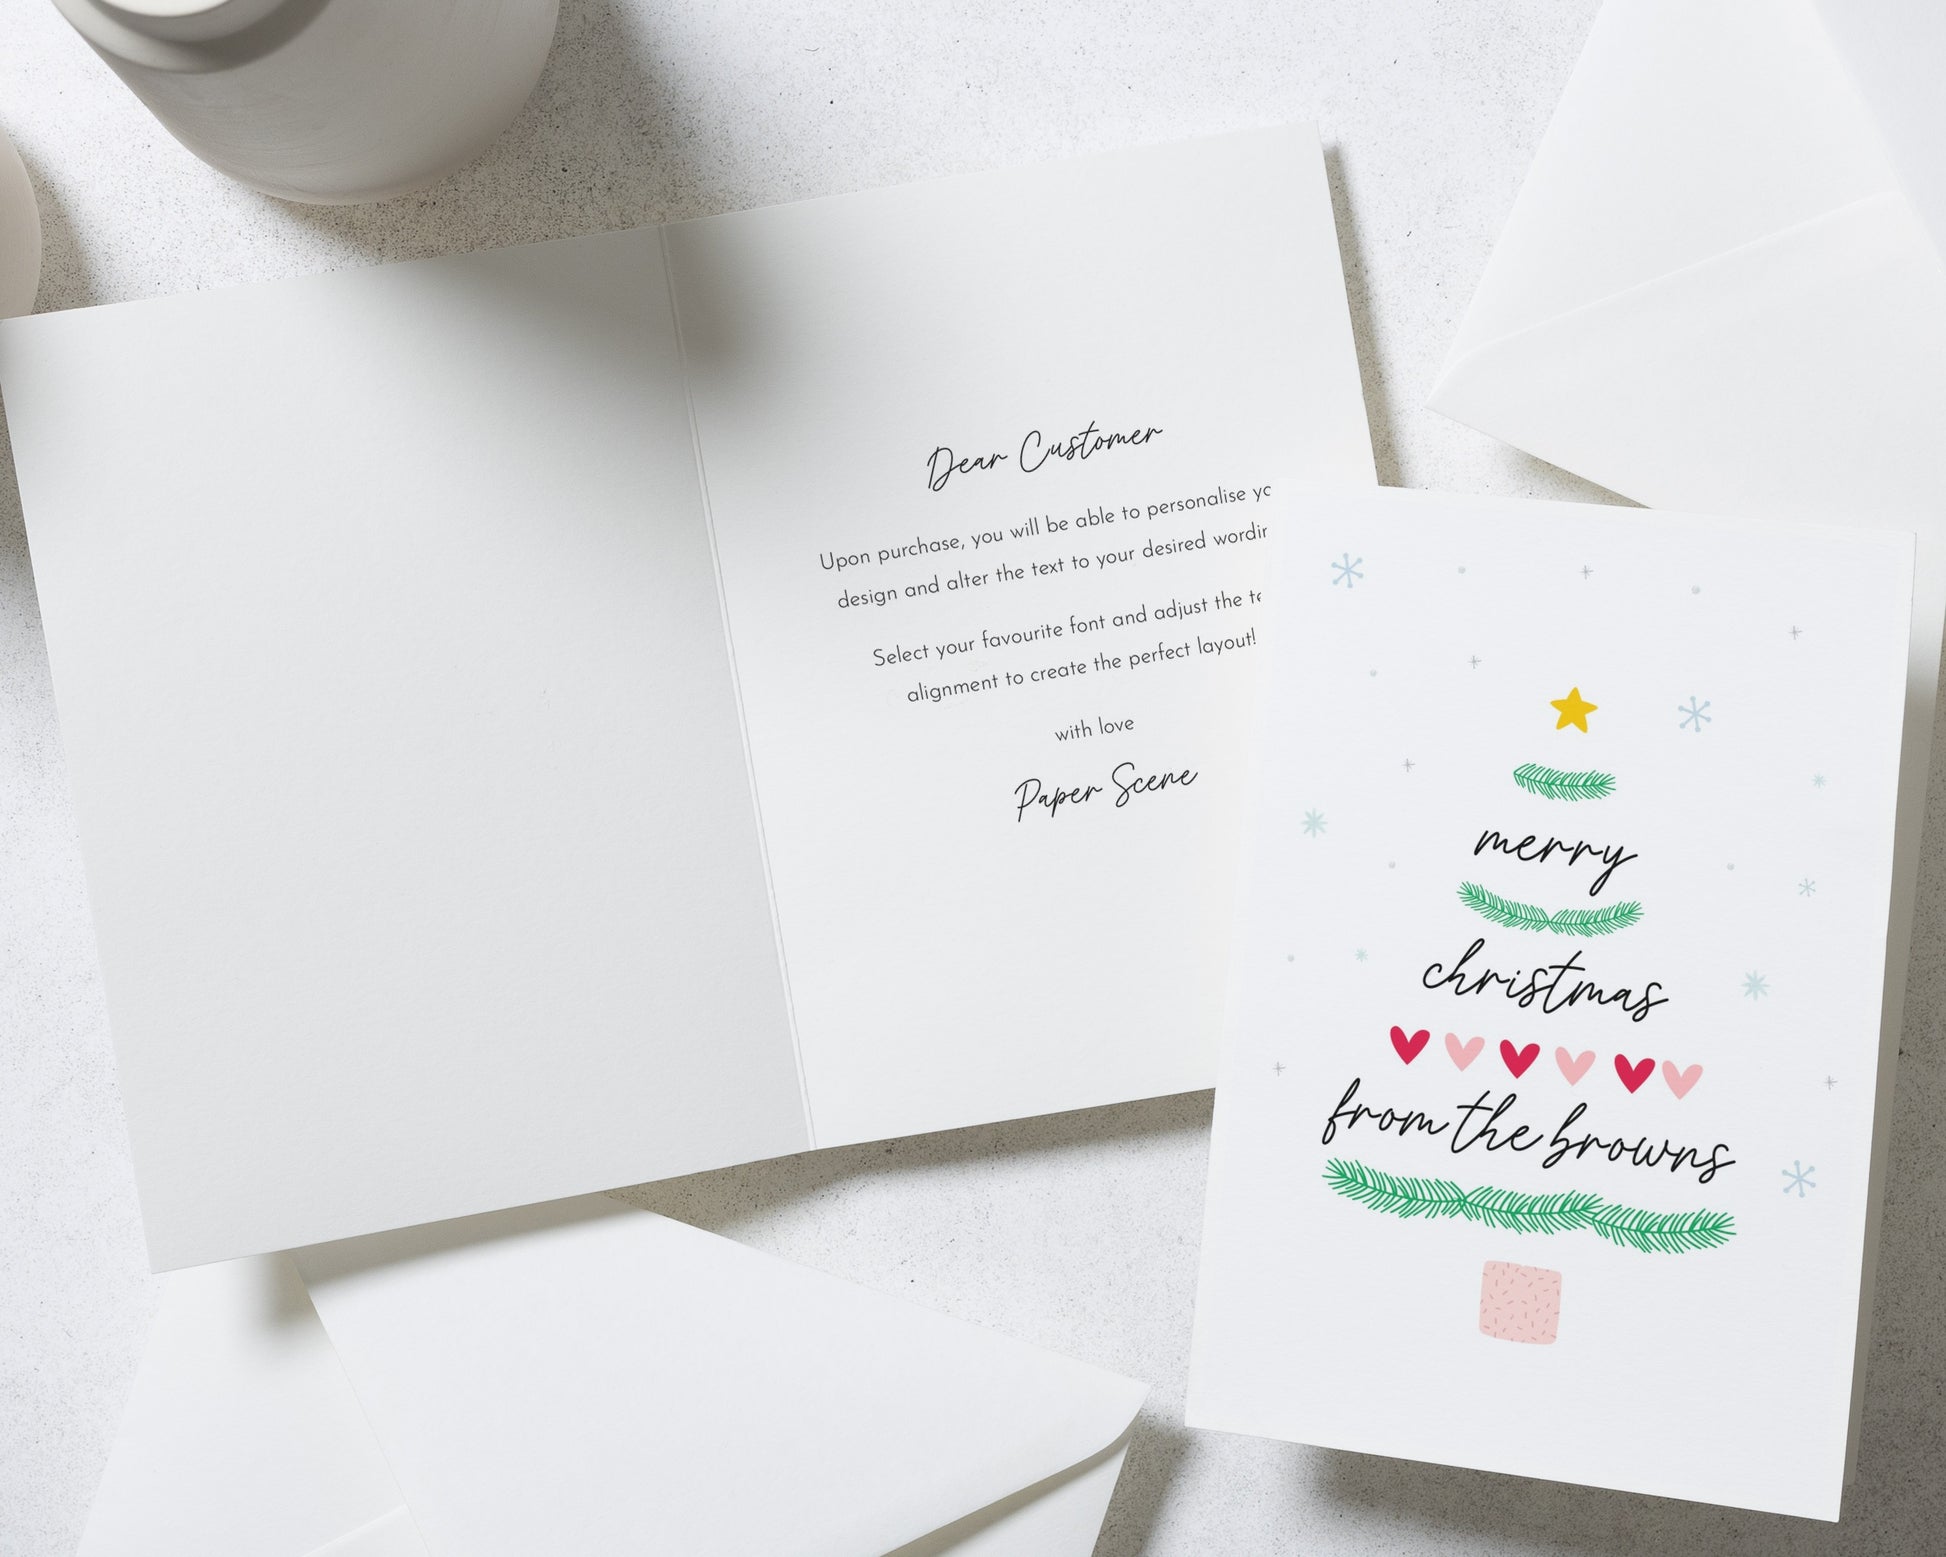 Dear Customer
Upon purchase, you will be able to personalise
design and alter the text to your desired
Select your favourite font and adjust the
alignment to create the perfect layout!
with love
Paper Scene
merry
christmas
from the browns